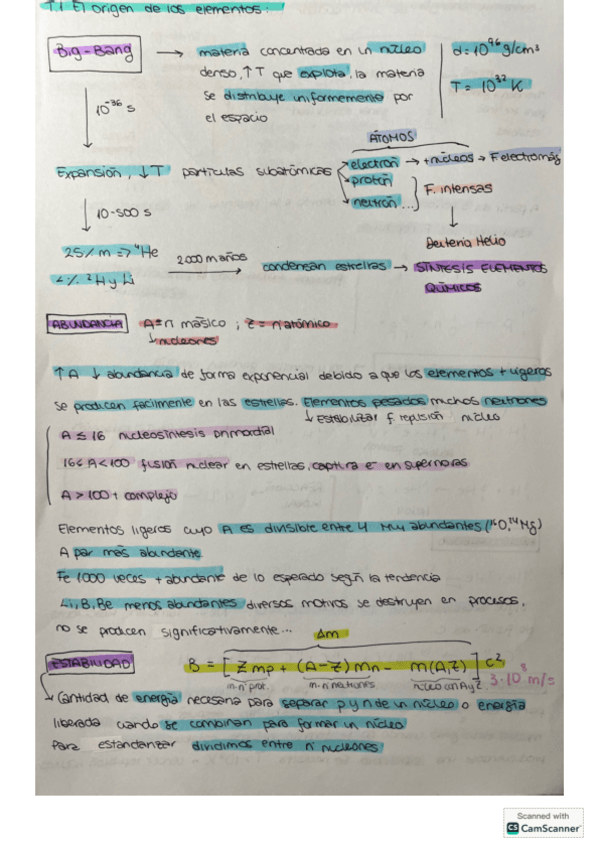 T.1 El origen de los elementos...
Big-Bang → materia concentrada en un núcleo
denso, ↑T que explota, la materia
se distribuye uniformemente por
el espacio
d = 10⁹⁶ g/cm³
T = 10³² K
10⁻³⁶ s
ÁTOMOS
Expansión, ↓T partículas subatómicas
electrón → +núcleos → F electromag
protón
neutrón...
F. intensas
10-500 s
Deuterio Helio
25% m => ⁴He
2000 m años
condensan estrellas → SÍNTESIS ELEMENTOS
QUÍMICOS
²H y Li
ABUNDANCIA A = n másico ; Z = n atómico
↳ nucleones
↑A ↓ abundancia de forma exponencial debido a que los elementos + ligeros
se producen facilmente en las estrellas. Elementos pesados muchos neutrones
↓ Estabilizar f. repulsión núcleo
A ≤ 16 nucleosíntesis primordial
16 < A < 100 fusión nuclear en estrellas, captura e⁻ en supernovas
A > 100 + complejo
Elementos ligeros cuyo A es divisible entre 4 muy abundantes (¹⁶O, Mg)
A par más abundante
Fe 1000 veces + abundante de lo esperado según la tendencia
Li, B, Be menos abundantes diversos motivos se destruyen en procesos,
no se producen significativamente...
Δm
ESTABILIDAD B = [Z mp + (A-Z) mn - m(A,Z)] c²
m·n prot.
m·n neutrones
núcleo con A y Z
3·10⁸ m/s
↳ Cantidad de energía necesaria para separar p y n de un núcleo o energía
liberada cuando se combinan para formar un núcleo
Para estandarizar dividimos entre n nucleones
Scanned with
CS CamScanner